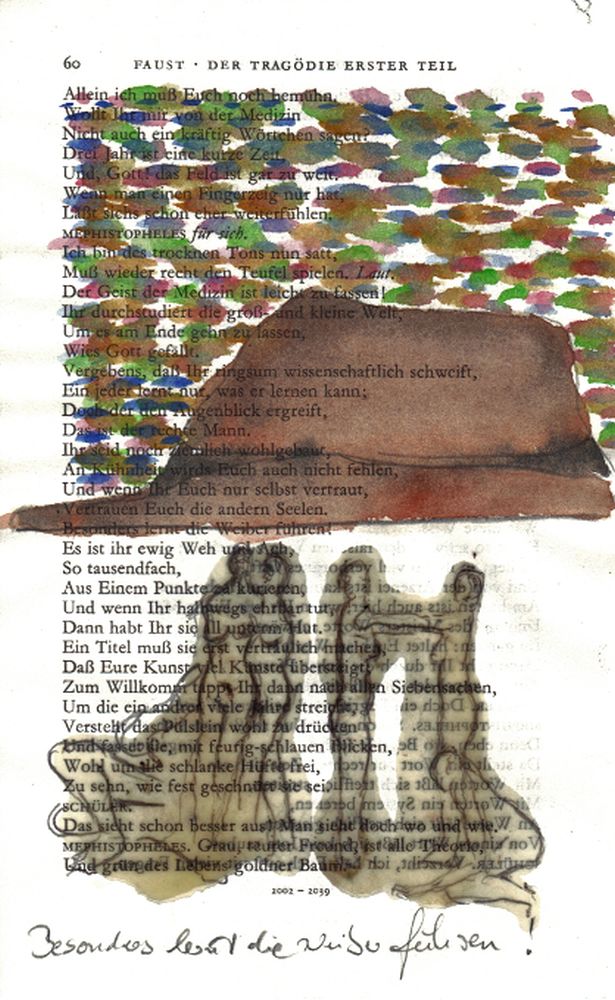 60 FAUST · DER TRAGÖDIE ERSTER TEIL
Allein ich muß Euch noch bemühn.
Wollt Ihr mir von der Medizin
Nicht auch ein kräftig Wörtchen sagen?
Drei Jahr ist eine kurze Zeit,
Und, Gott! das Feld ist gar zu weit.
Wenn man einen Fingerzeig nur hat,
Läßt sichs schon eher weiterfühlen.
MEPHISTOPHELES für sich.
Ich bin des trocknen Tons nun satt,
Muß wieder recht den Teufel spielen. Laut.
Der Geist der Medizin ist leicht zu fassen!
Ihr durchstudiert die groß- und kleine Welt,
Um es am Ende gehn zu lassen,
Wies Gott gefällt.
Vergebens, daß Ihr ringsum wissenschaftlich schweift,
Ein jeder lernt nur, was er lernen kann;
Doch der den Augenblick ergreift,
Das ist der rechte Mann.
Ihr seid noch ziemlich wohlgebaut,
An Kühnheit wirds Euch auch nicht fehlen,
Und wenn Ihr Euch nur selbst vertraut,
Vertrauen Euch die andern Seelen.
Besonders lernt die Weiber führen!
Es ist ihr ewig Weh und Ach,
So tausendfach,
Aus Einem Punkte zu kurieren,
Und wenn Ihr halbwegs ehrbar tut,
Dann habt Ihr sie all unterm Hut.
Ein Titel muß sie erst vertraulich machen,
Daß Eure Kunst viel Künste übersteigt;
Zum Willkomm tappt Ihr dann nach allen Siebensachen,
Um die ein andrer viele Jahre streicht,
Versteht das Pülslein wohl zu drücken
Und fasset sie, mit feurig-schlauen Blicken,
Wohl um die schlanke Hüfte frei,
Zu sehn, wie fest geschnürt sie sei.
SCHÜLER.
Das sieht schon besser aus! Man sieht doch wo und wie.
MEPHISTOPHELES. Grau, teurer Freund, ist alle Theorie,
Und grün des Lebens goldner Baum.
2002 – 2039
Besonders lernt die Weiber führen!